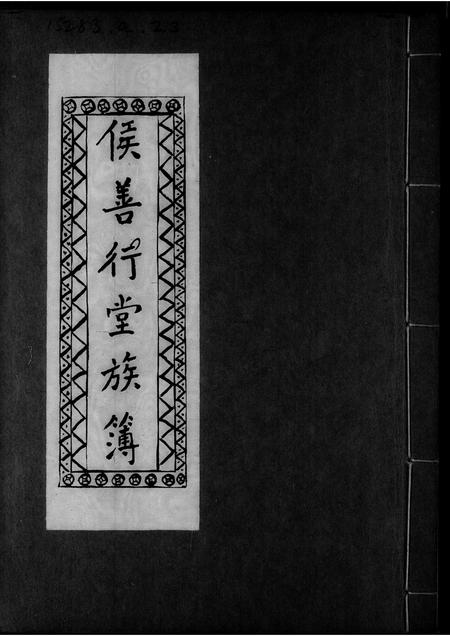 15283.a.23
侯善行堂族簿